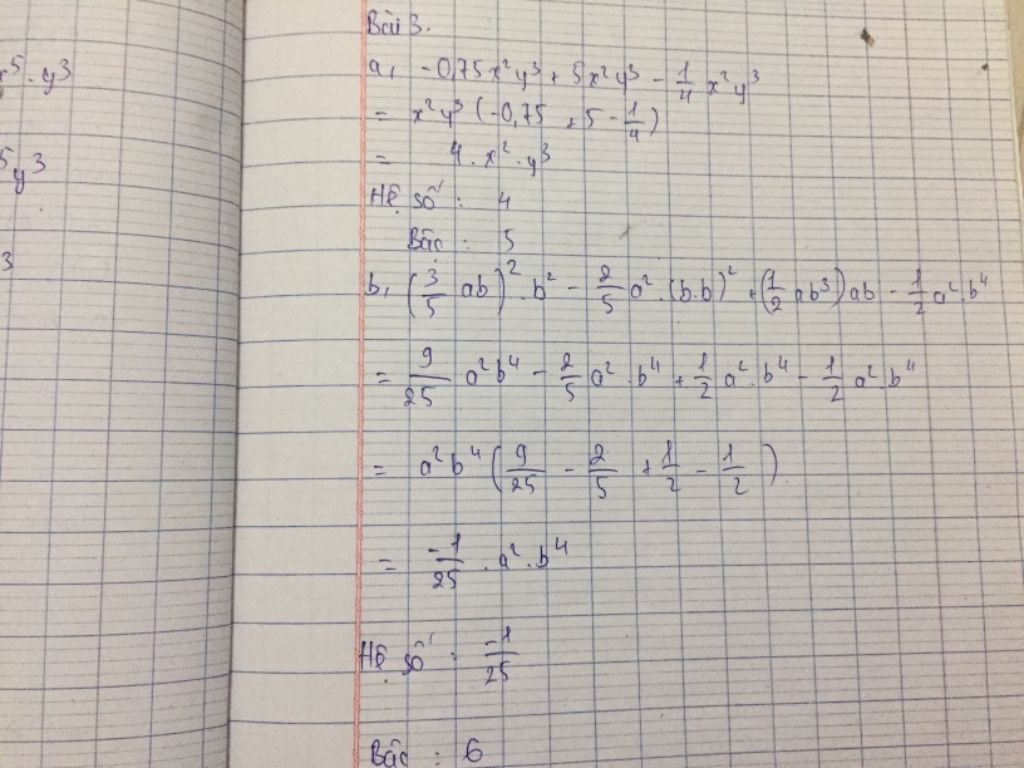 x⁵.y³
⁵y³
3
Bài 3.
a, -0,75x²y³ + 5x²y³ - 1/4 x²y³
= x²y³ (-0,75 + 5 - 1/4)
= 4.x².y³
Hệ số : 4
Bậc : 5
b, (3/5 ab)².b² - 2/5 a².(b.b)² + (1/2 ab³)ab - 1/2 a².b⁴
= 9/25 a²b⁴ - 2/5 a².b⁴ + 1/2 a².b⁴ - 1/2 a².b⁴
= a²b⁴ (9/25 - 2/5 + 1/2 - 1/2)
= -1/25 .a².b⁴
Hệ số : -1/25
Bậc : 6